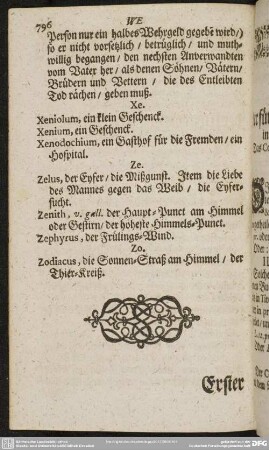 796 WE
Person nur ein halbes Wehrgeld gegebē wird/)
so er nicht vorsetzlich / betrüglich / und muth-
willig begangen / den nechsten Anverwandten
vom Vater her / als denen Söhnen / Vätern/
Brüdern und Vettern / die des Entleibten
Tod rächen / geben muß.
Xe.
Xeniolum, ein klein Geschenck.
Xenium, ein Geschenck.
Xenodochium, ein Gasthof für die Fremden / ein
Hospital.
Ze.
Zelus, der Eyfer / die Mißgunst. Item die Liebe
des Mannes gegen das Weib / die Eyfer-
sucht.
Zenith, v. gæll. der Haupt-Punct am Himmel
oder Gestirn / der hoheste Himmels-Punct.
Zephyrus, der Frülings-Wind.
Zo.
Zodiacus, die Sonnen-Straß am Himmel / der
Thier-Kreiß.
Erster